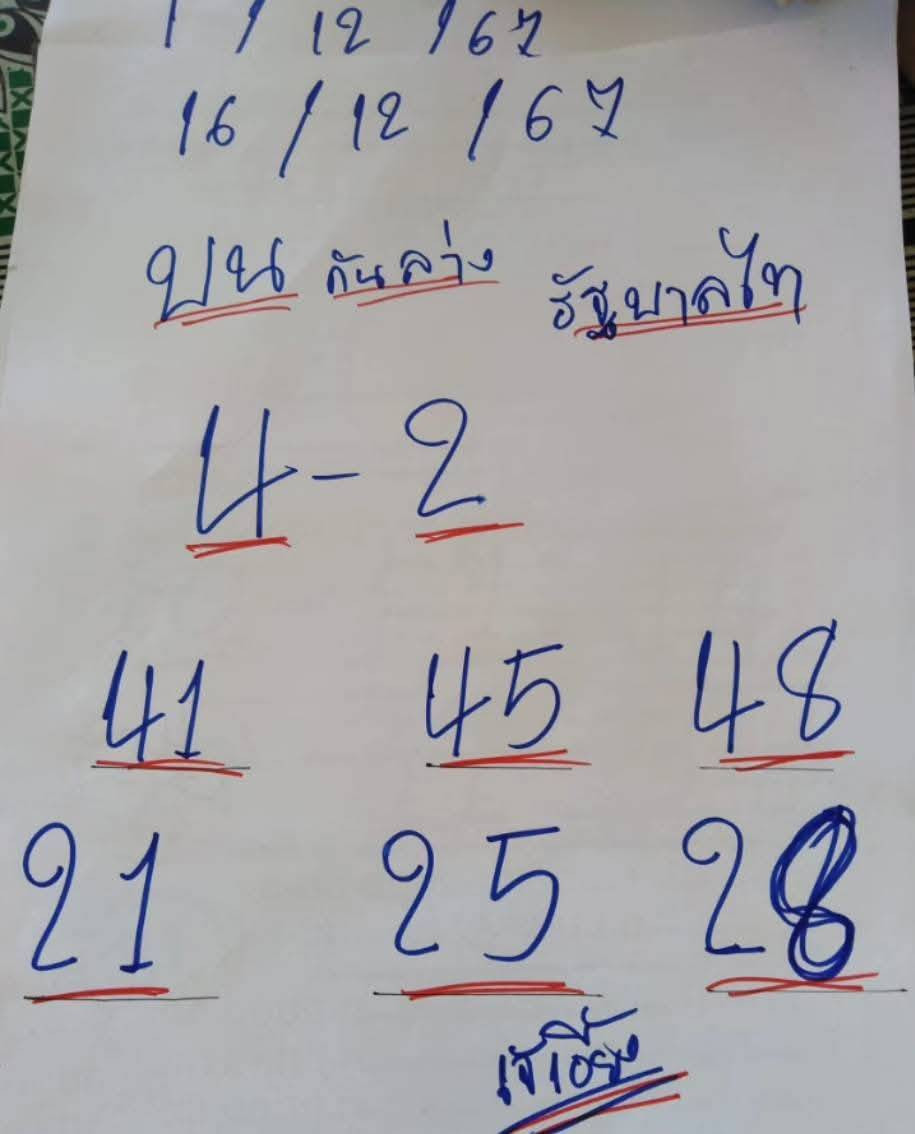 1 / 12 / 67
16 / 12 / 67
บน กันล่าง รัฐบาลไท
4 - 2
41 45 48
21 25 28